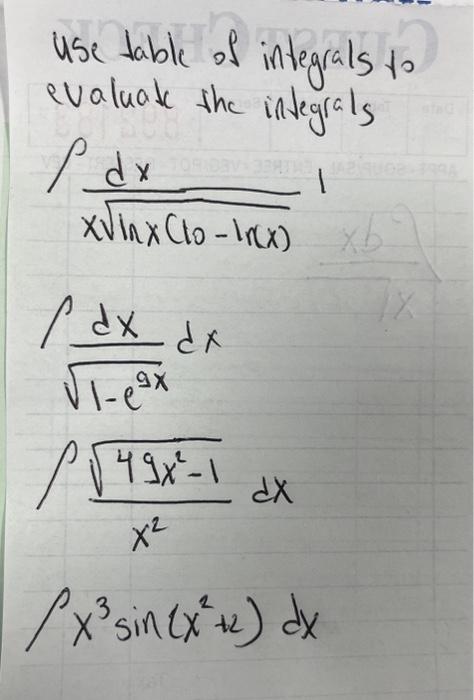 use table of integrals to
evaluate the integrals
∫ dx / x√lnx(10-ln(x)) 1
∫ dx / √1-e^9x dx
∫ √49x²-1 / x² dx
∫x³sin(x²+2) dx